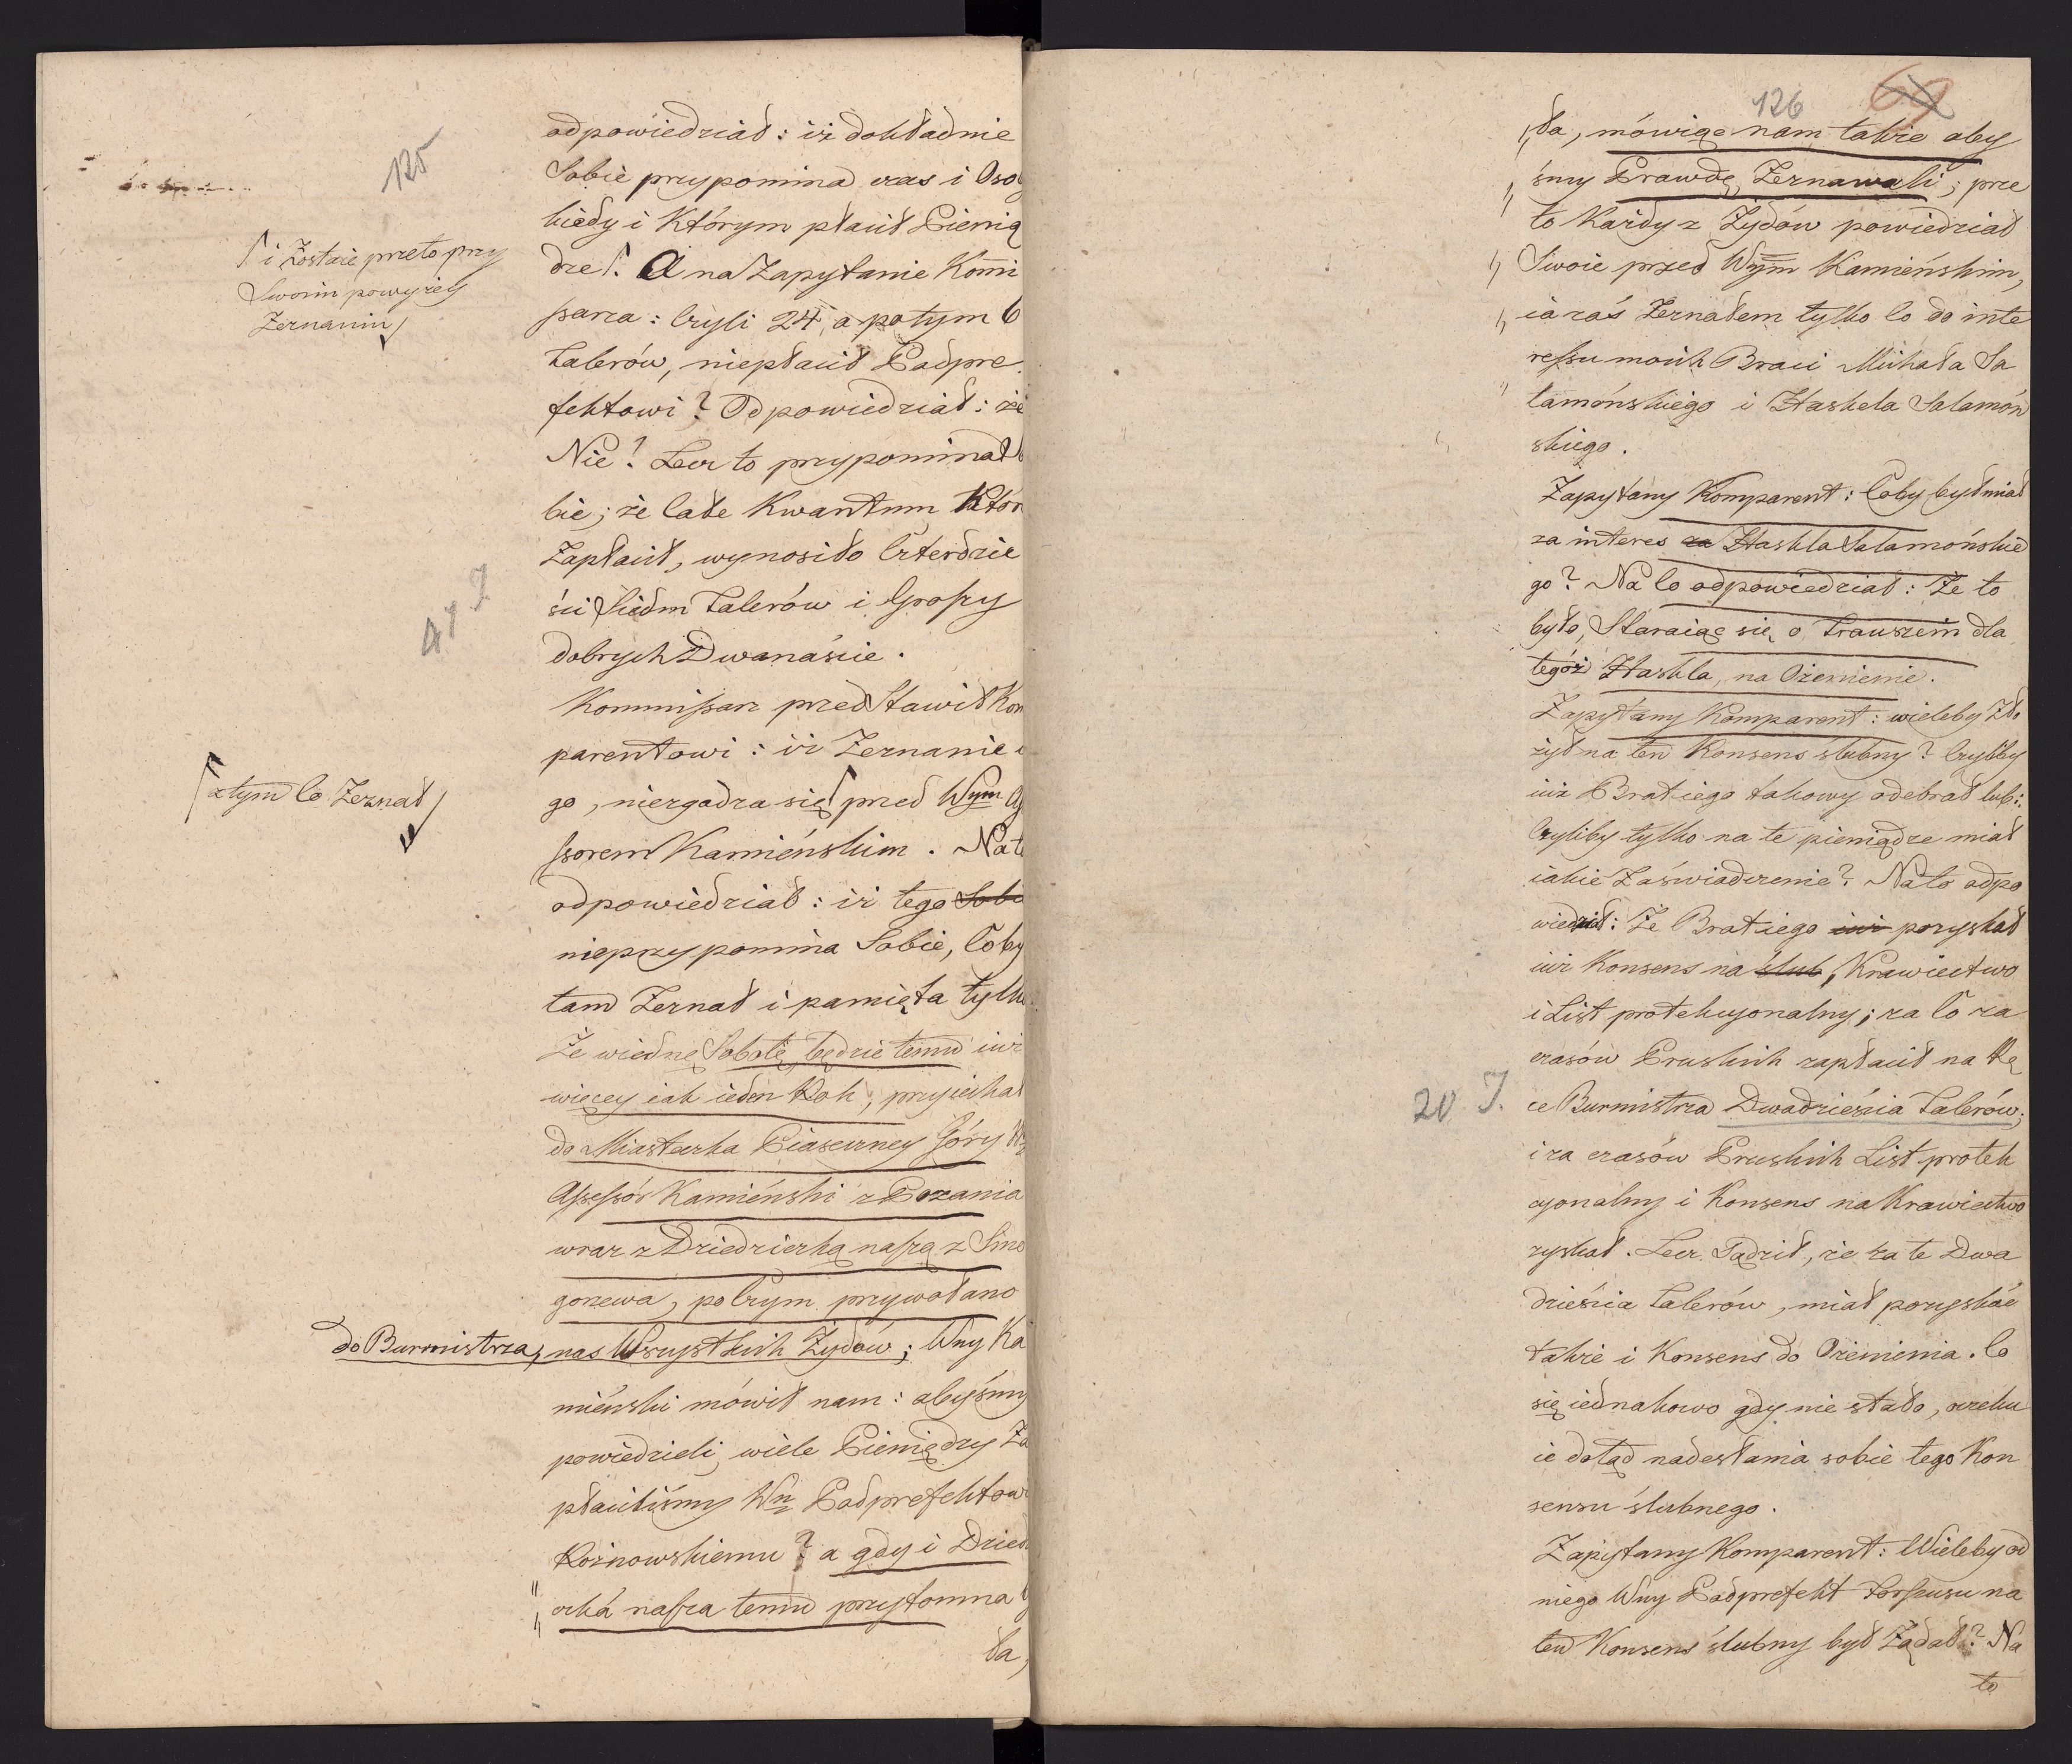 125
odpowiedział: iż dokładnie
Sobie przypomina czas i Oso
kiedy i Którym płacił Pienią
dze⌈. A na Zapytanie Kom̄i
ssarza: Czyli 24, a potym 6
Talerów, niepłacił Podpre
fektowi? Odpowiedział: że
Nie! Lecz to przypominał
bie; że Całe Kwantum Któr
Zapłacił, wynosiło Czterdzie
ści Siedm Talerów i Groszy
dobrych Dwanaście.
⌈ i Zostaie przeto przy
Swoim powyżey
Zeznaniu /
47 T
Kommissarz przed Stawił Kom
parentowi: iż Zeznanie
go, niezgadza się⌈ przed Wym As
ssorem Kamieńskim. Na to
odpowiedział: iż tego Sobie
nieprzypomina Sobie, Coby
tam Zeznał i pamięta tylko
⌈ z tym Co Zeznał /
Że wiednę Sobotę, będzie temu iuż
więcey iak ieden Rok, przyiechał
do Miasteczka Piaseczney Góry W
Assessór Kamieński z Poznania
wraz z Dziedziczką naszą z Smo
gorzewa, poczym przywołano
do Burmistrza, nas Wszystkich Żydów; Wny Ka
mieński mówił nam: abyśmy
powiedzieli, wiele Pieniędzy Za
płaciliśmy Wu Podprefektow
Rożnowskiemu? a gdy i Dzied
czká nasza temu przytomna
ła,
126
69
ła, mówiąc nam także aby
śmy Prawdę Zeznawali; prze
to Każdy z Żydów powiedział
Swoie przed Wym Kamieńskim,
ia zaś Zeznałem tylko Co do inte
ressu moich Braci Michała Sa
lamońskiego i Haskela Salamón
skiego.
Zapytany Komparent: Coby był miał
za interes za Haskla Salamońskie
go? Na Co odpowiedział: Że to
było, Staraiąc się o Trauszein dla
tegóż Haskla, na Ożenienie.
Zapytany Komparent: wieleby Zło
żył na ten Konsens ślubny? Czyliby
iuż Brat iego takowy odebrał lub:
Czyliby tylko na te pieniądze miał
iakie Zaświadczenie? Na to odpo
wiedział: Że Brat iego iuż pozyskał
iuż Konsens na ślub, Krawiectwo
i List protekcyonalny; za Co za
czasów Pruskich zapłacił na Rę
ce Burmistrza Dwadzieścia Talerów;
20 T.
i za czasów Pruskich List protek
cyonalny i Konsens na Krawiectwo
zyskał. Lecz Sądził, że za te Dwa
dzieścia Talerów, miał pozyskáć
także i Konsens do Ożenienia. Co
się iednakowo gdy nie stało, oczeku
ie dotąd nadesłania sobie tego Kon
sensu ślubnego.
Zapytany Komparent: Wieleby od
niego Wny Podprefekt Forszusu na
ten Konsens ślubny był Żądał? Na
to